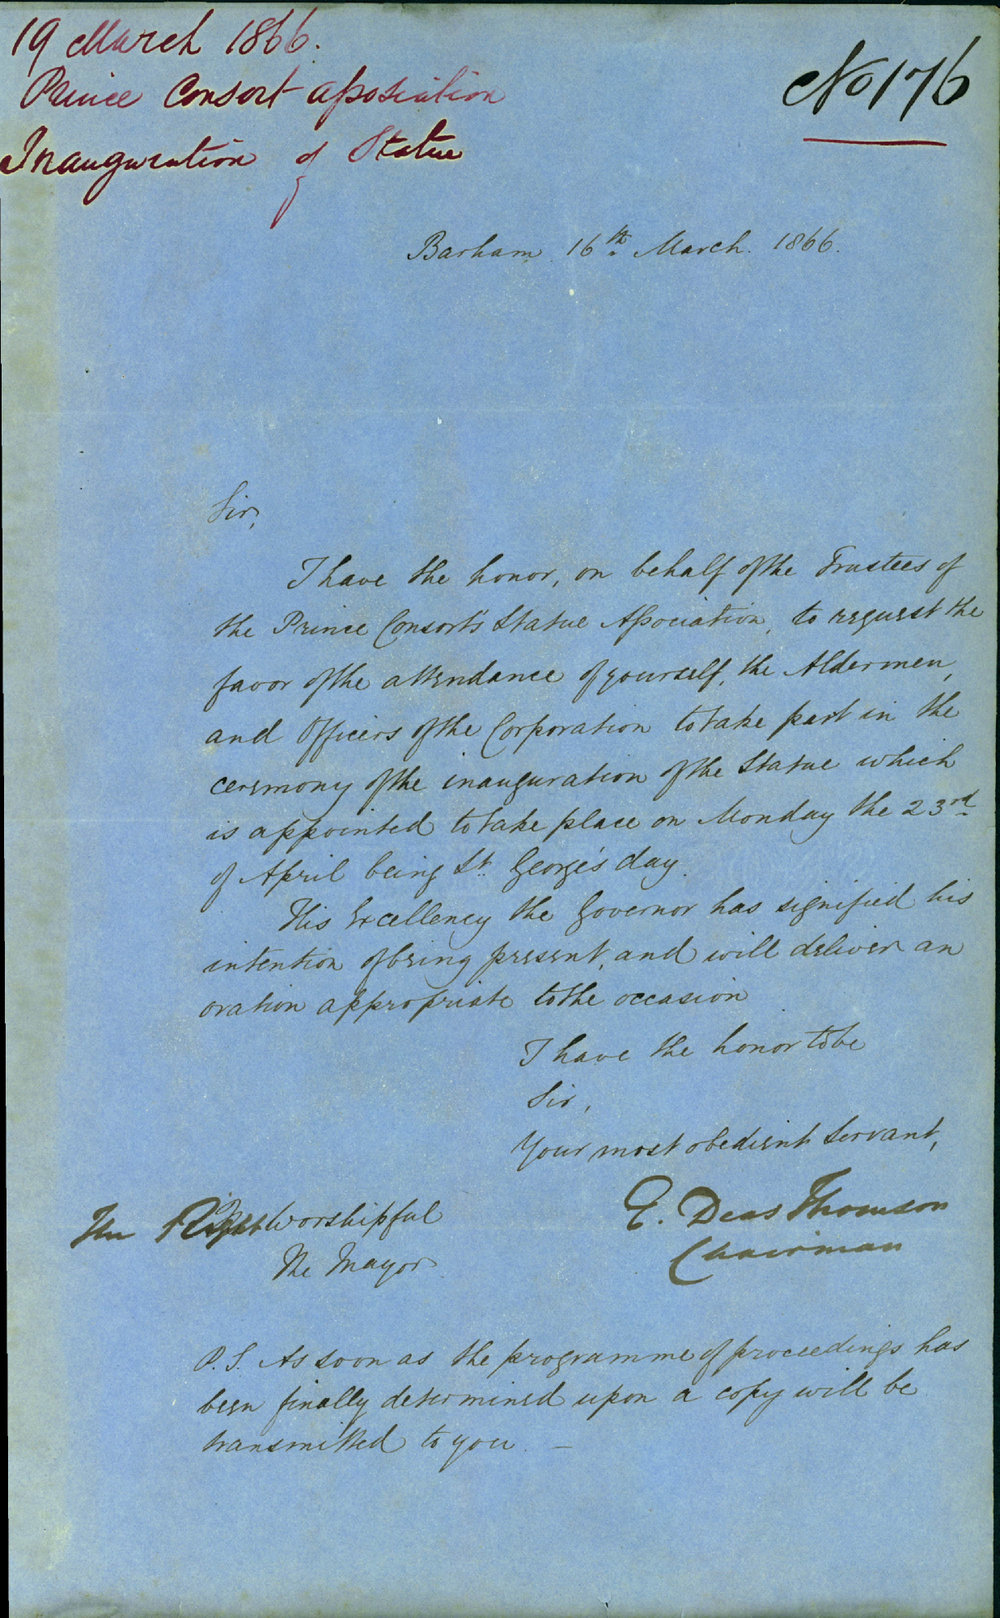 19 March 1866.
Prince Consort Association
Inauguration of Statue
No 176
Barham 16th March. 1866.
Sir,
I have the honor, on behalf of the Trustees of
the Prince Consort's Statue Association, to request the
favor of the attendance of yourself, the Aldermen,
and Officers of the Corporation to take part in the
ceremony of the inauguration of the Statue which
is appointed to take place on Monday the 23rd
of April being St. George's day.
His Excellency the Governor has signified his
intention of being present, and will deliver an
oration appropriate to the occasion
I have the honor to be
Sir,
Your most obedient Servant,
E. Deas Thomson
Chairman
The Right Worshipful
The Mayor
P.S. As soon as the programme of proceedings has
been finally determined upon a copy will be
transmitted to you. —